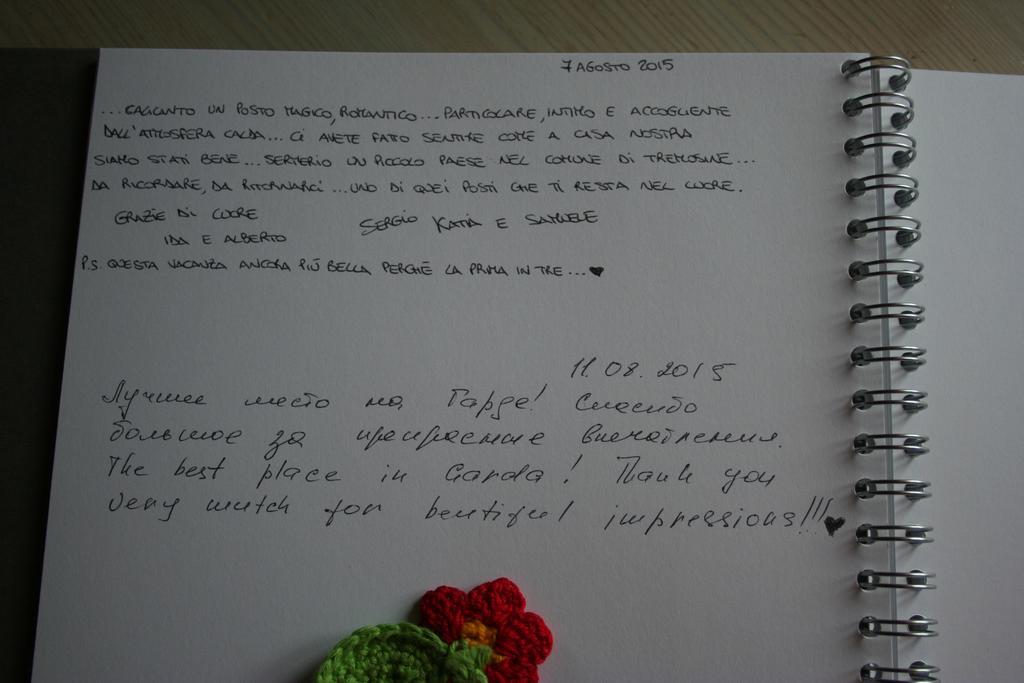 7 AGOSTO 2015
... UN POSTO MAGICO, ROMANTICO... PARTICOLARE, INTIMO E ACCOGLIENTE
DALL'ATMOSFERA CALDA... CI AVETE FATTO SENTIRE COME A CASA NOSTRA
SIAMO STATI BENE... SERMERIO UN PICCOLO PAESE NEL COMUNE DI TREMOSINE...
DA RICORDARE, DA RITORNARCI... UNO DI QUEI POSTI CHE TI RESTA NEL CUORE.
GRAZIE DI CUORE
IDA E ALBERTO
SERGIO KATIA E SAMUELE
P.S. QUESTA VACANZA ANCORA PIÙ BELLA PERCHÈ LA PRIMA IN TRE... ♥
11.08.2015
Лучшее место на Гарде! Спасибо
большое за прекрасные впечатления.
The best place in Garda! Thank you
very mutch for beutiful impressions!!! ♥